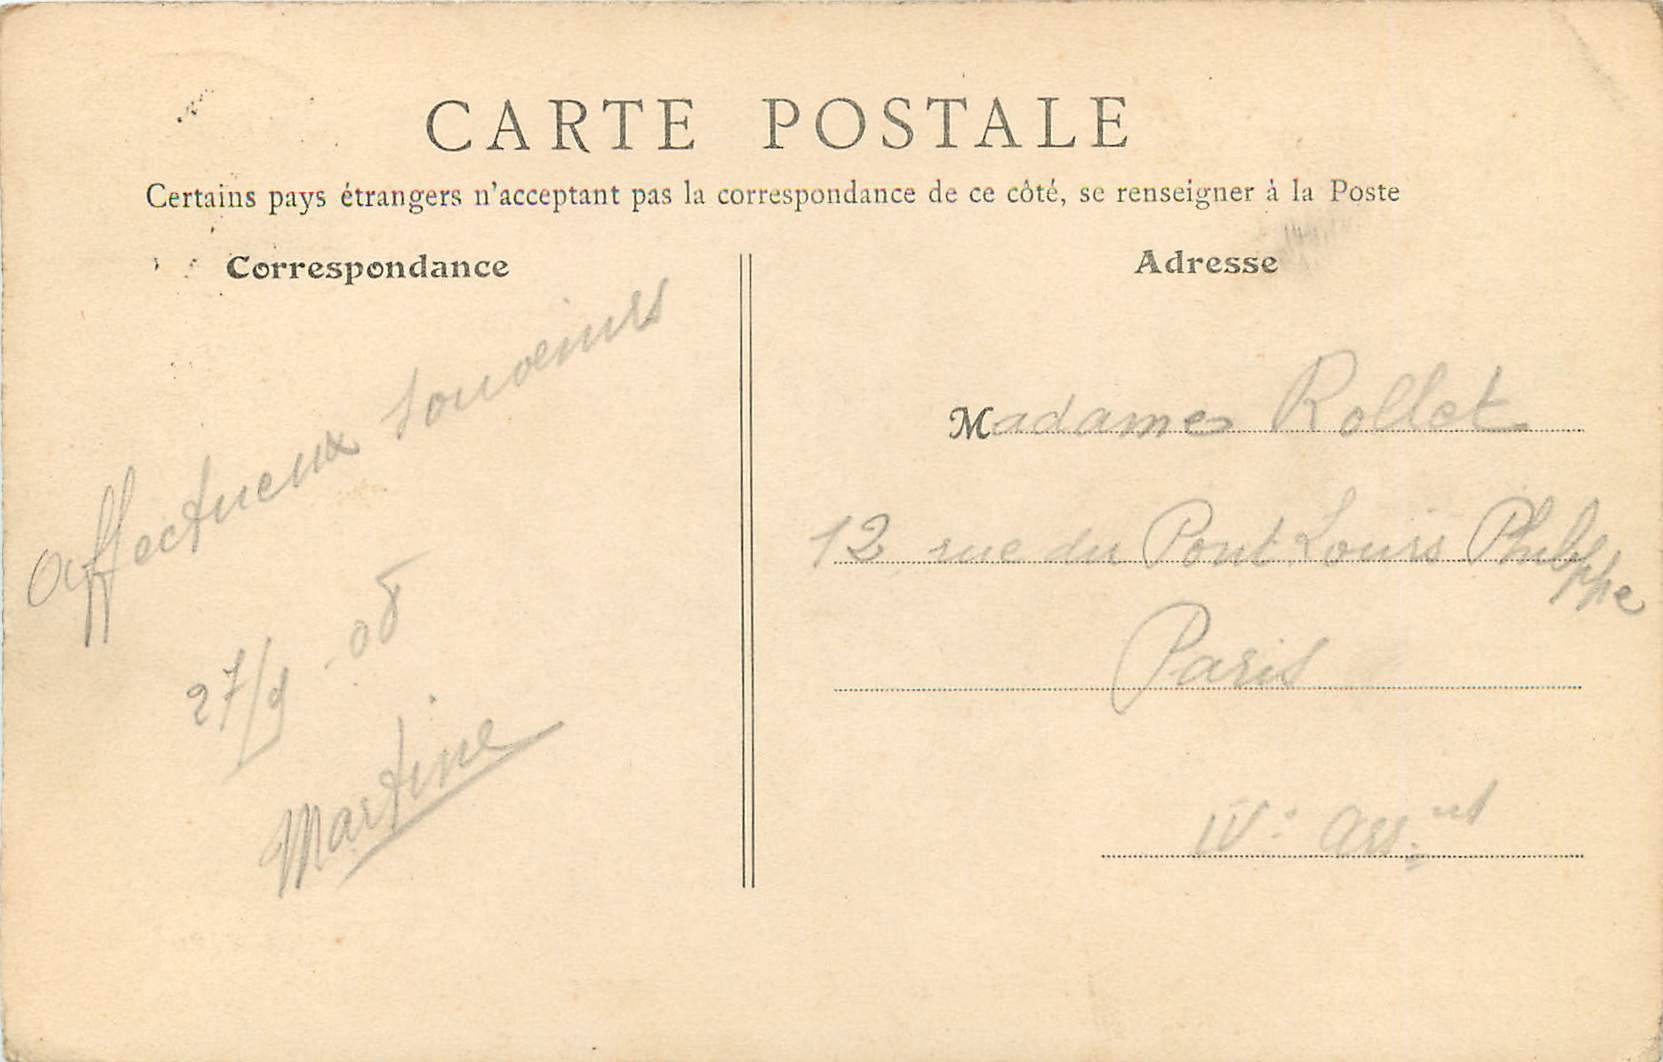 CARTE POSTALE
Certains pays étrangers n'acceptant pas la correspondance de ce côté, se renseigner à la Poste
Correspondance
Affectueux souvenirs
27/9 - 08
Martine
Adresse
Madames Rollet
12 rue du Pont Louis Philppe
Paris
IVe Arr.nt